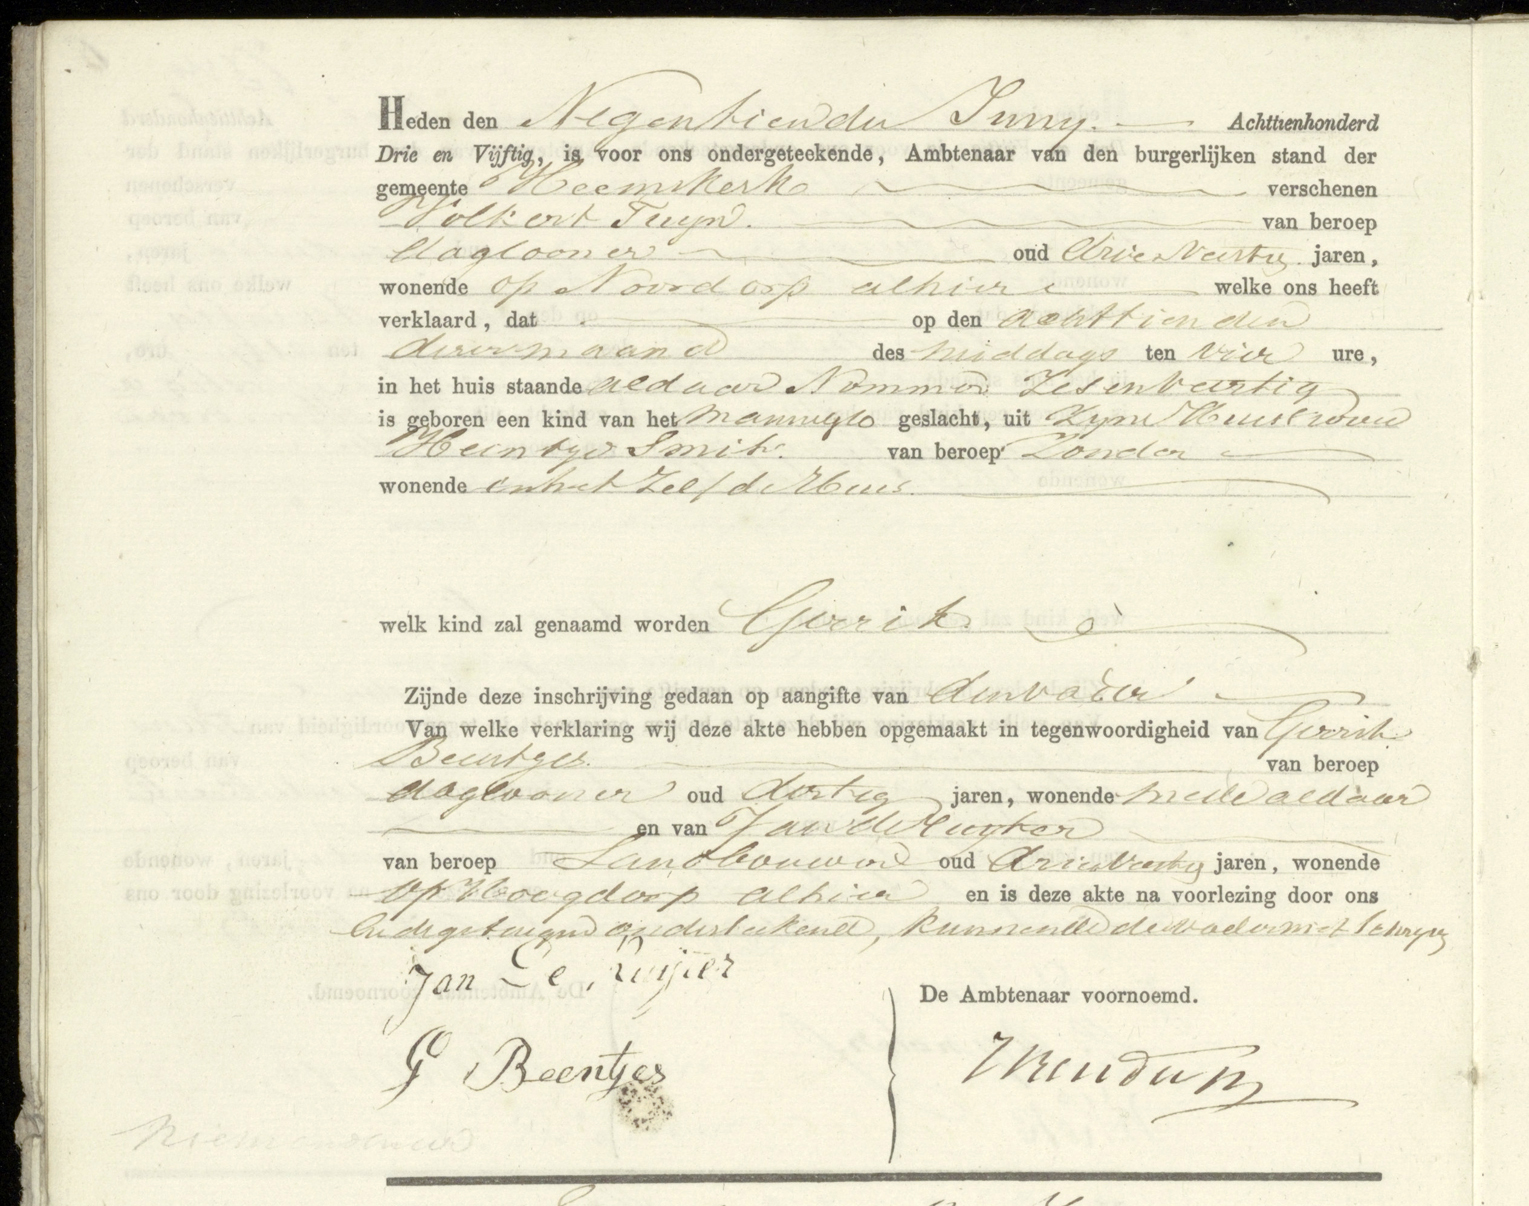 Heden den Negentiende Juny. Achttienhonderd
Drie en Vijftig, is voor ons ondergeteekende, Ambtenaar van den burgerlijken stand der
gemeente Heemskerk verschenen
Volkert Tuyn. van beroep
daglooner oud drie Veertig jaren,
wonende op Noordorp alhier welke ons heeft
verklaard, dat op den achttienden
dezer maand des middags ten vier ure,
in het huis staande aldaar Nommer Zesenveertig
is geboren een kind van het mannelyk geslacht, uit Zyne Huisvrouw
Smit. van beroep Zonder
wonende in het Zelfde Huis.
welk kind zal genaamd worden Gerrit.
Zijnde deze inschrijving gedaan op aangifte van den vader
Van welke verklaring wij deze akte hebben opgemaakt in tegenwoordigheid van Gerrit
Beentjes. van beroep
daglooner oud dertig jaren, wonende mede aldaar
en van Jan de Ruyter
van beroep Landbouwer oud drie Veertig jaren, wonende
op Hoogdorp alhier en is deze akte na voorlezing door ons
en de getuigen onderteekend, kunnende de vader niet schryven
Jan De Ruijter
De Ambtenaar voornoemd.
G Beentjes